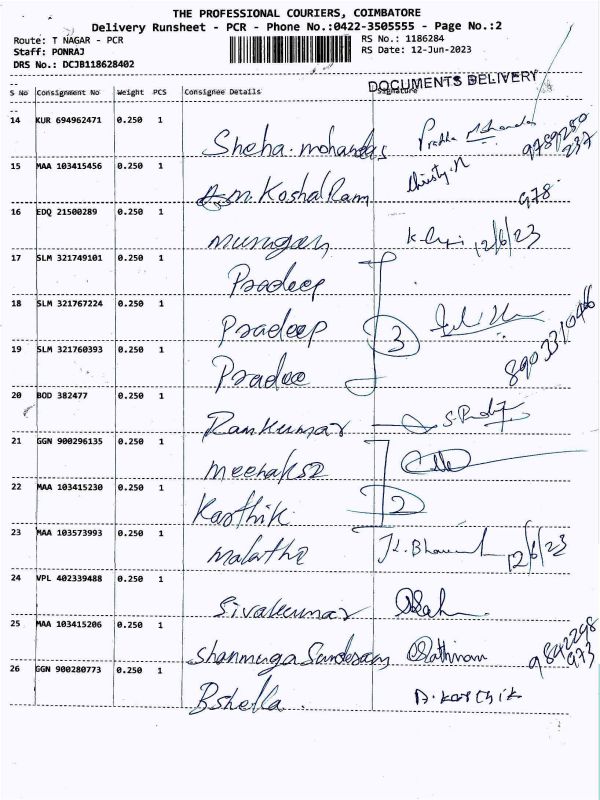 THE PROFESSIONAL COURIERS, COIMBATORE
Delivery Runsheet - PCR - Phone No.:0422-3505555 - Page No.:2
Route: T NAGAR - PCR
RS No.: 1186284
Staff: PONRAJ
RS Date: 12-Jun-2023
DRS No.: DCJB118628402
DOCUMENTS DELIVERY
S No Consignment No Weight PCS Consignee Details Signature
14 KUR 694962471 0.250 1
Sneha. mohandas
15 MAA 103415456 0.250 1
m. Koshal Ram
978
16 EDQ 21500289 0.250 1
murugan 12/6/23
17 SLM 321749101 0.250 1
Pradeep
18 SLM 321767224 0.250 1
Pradeep 3
19 SLM 321760393 0.250 1
20 BOD 382477 0.250 1
Ramkumar
21 GGN 900296135 0.250 1
22 MAA 103415230 0.250 1
Karthik 2
23 MAA 103573993 0.250 1
Malathi 12/6/23
24 VPL 402339488 0.250 1
Sivakumar
25 MAA 103415206 0.250 1
Shanmuga Sundaram
26 GGN 900280773 0.250 1
Bshella. D. Karthik